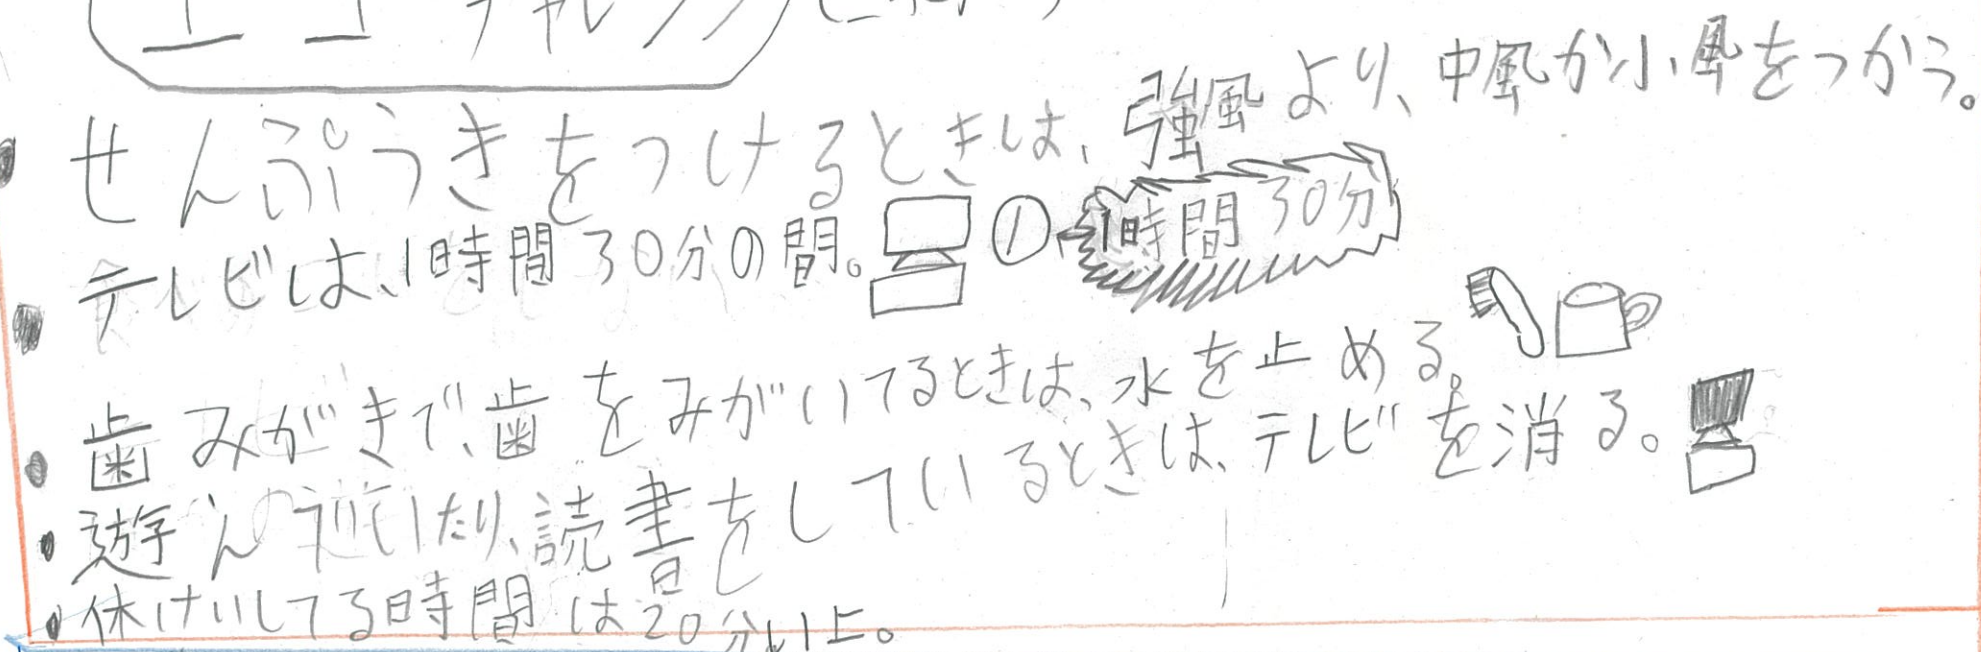 エコチャレンジ
・せんぷうきをつけるときは、強風より、中風か小風をつかう。
・テレビは、1時間30分の間。① 1時間30分
・歯みがきで、歯をみがいてるときは、水を止める。
・遊んでいたり、読書をしているときは、テレビを消る。
・休けいしてる時間は20分以上。